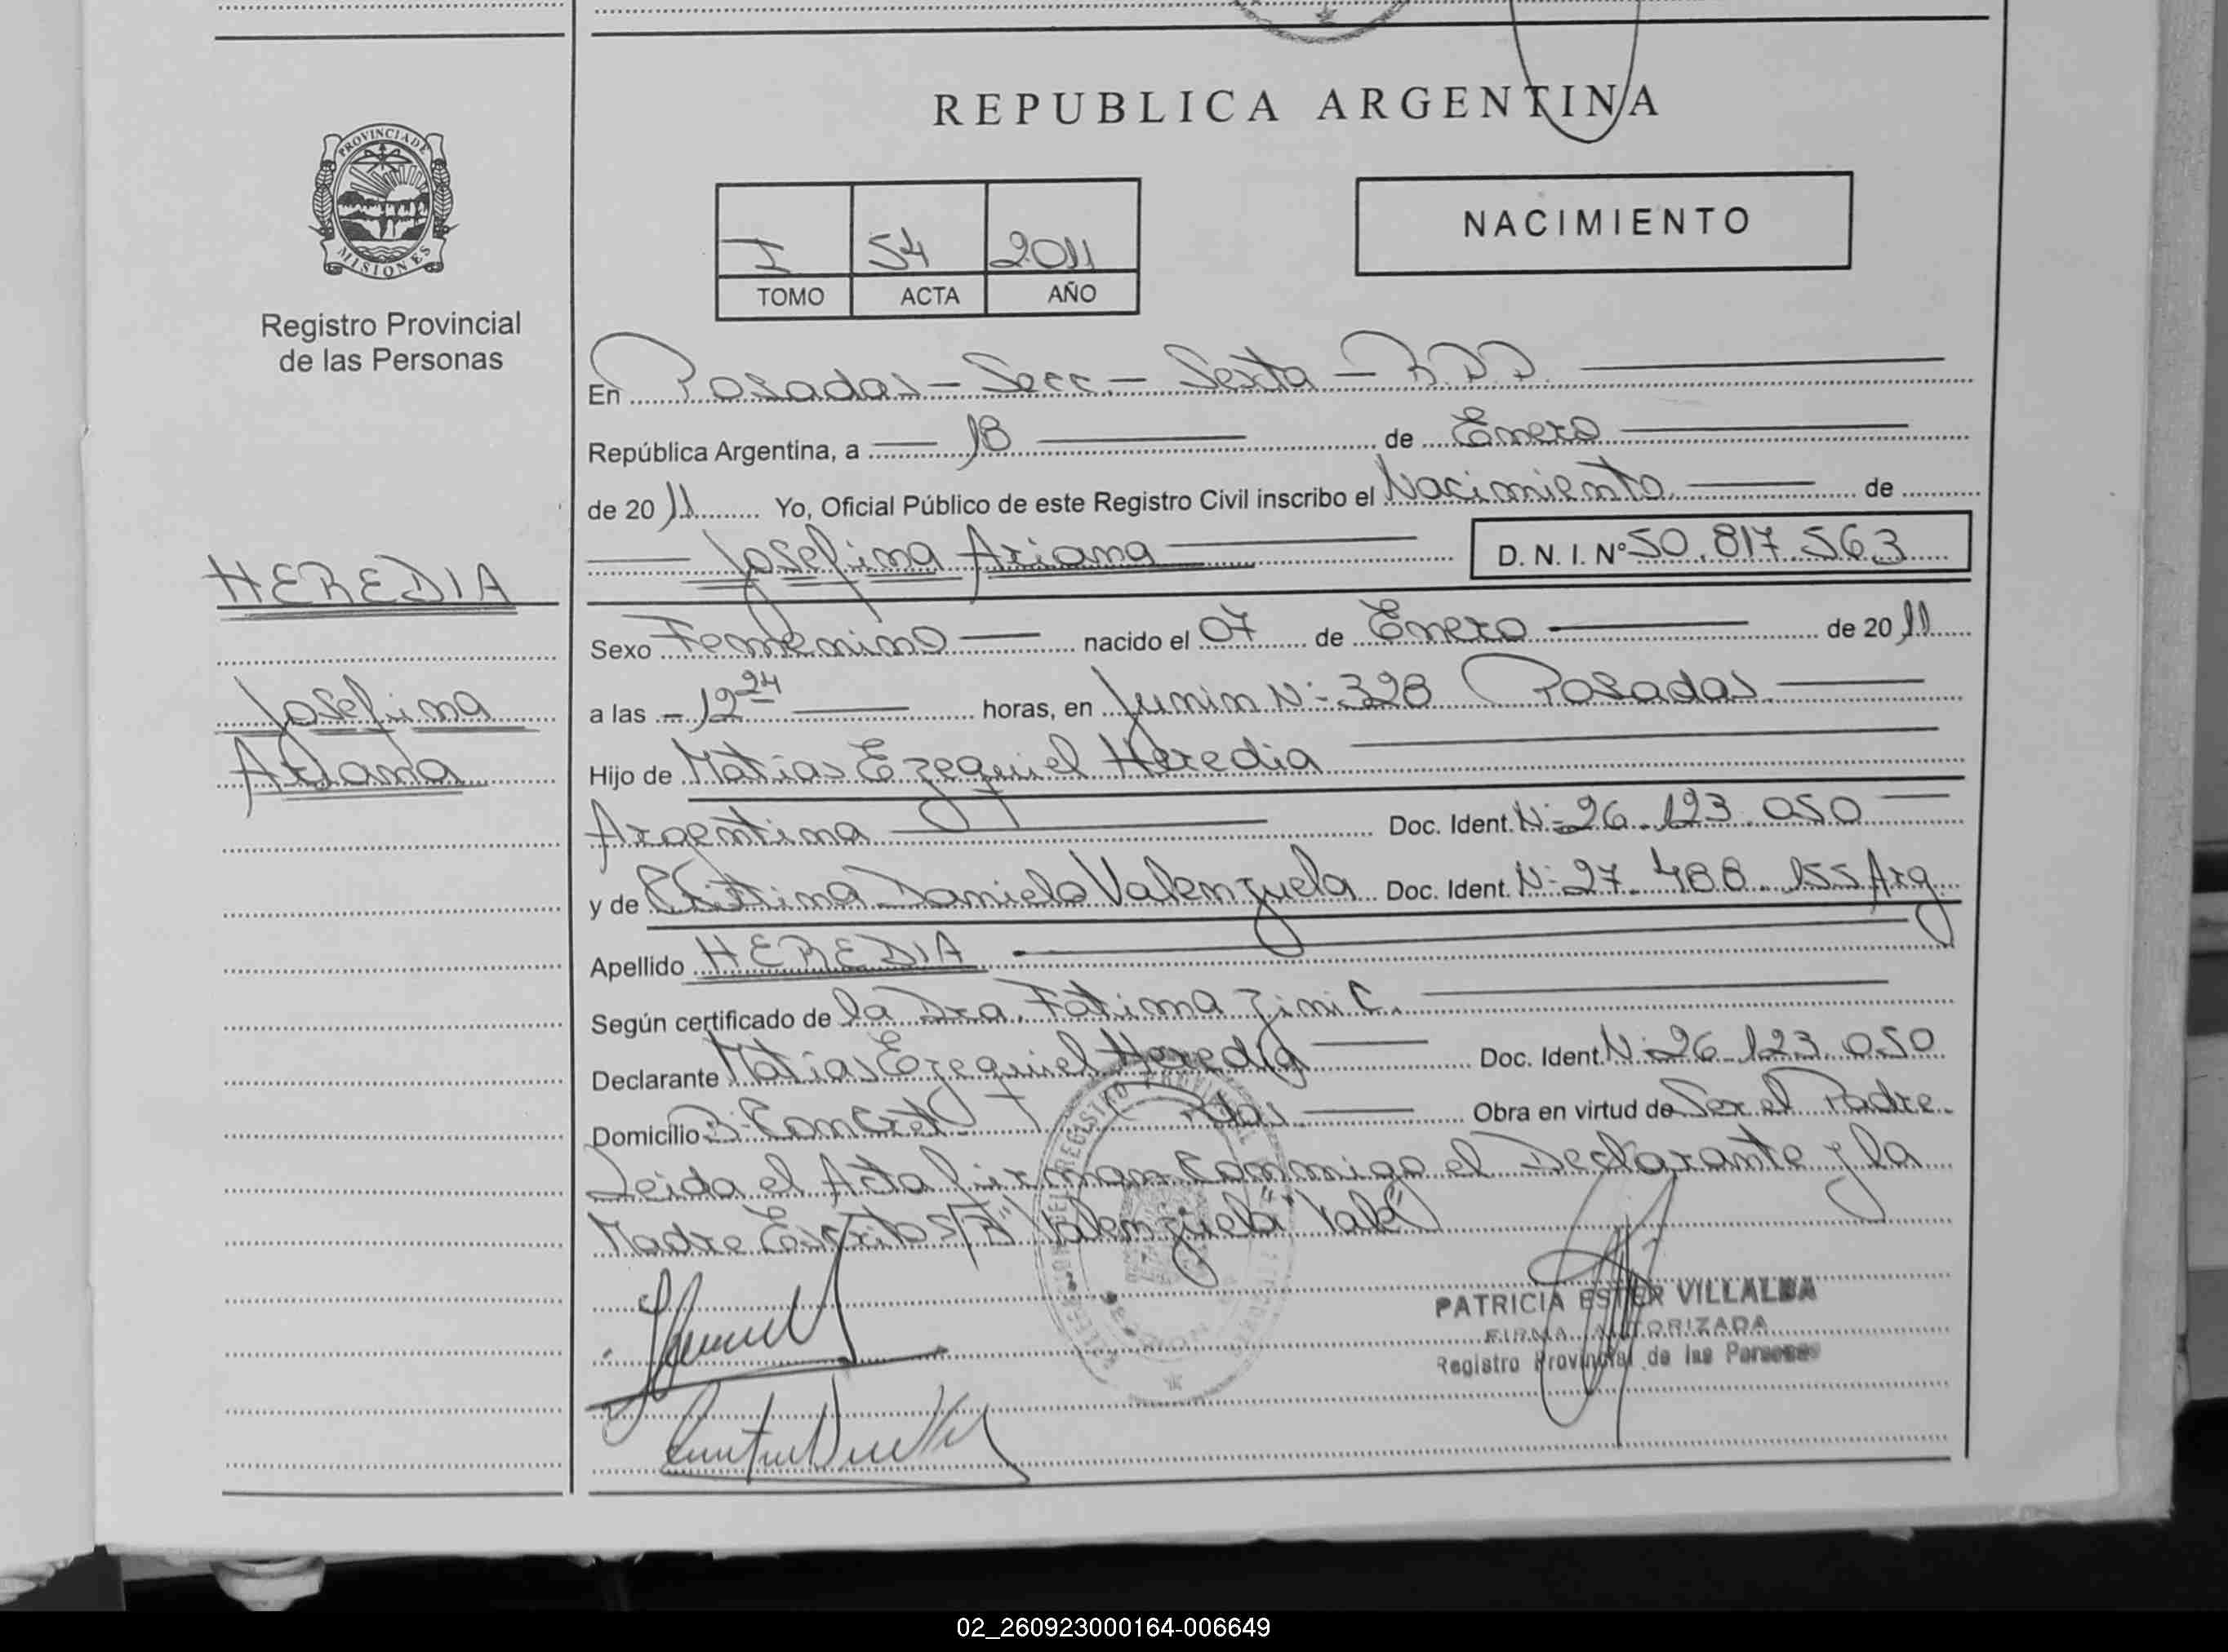 REPUBLICA ARGENTINA
PROVINCIA DE
MISIONES
Registro Provincial
de las Personas
I 54 2011
TOMO ACTA AÑO
NACIMIENTO
En Posadas - Secc - Sexta - 
República Argentina, a 18 de Enero
de 20 11 Yo, Oficial Público de este Registro Civil inscribo el Nacimiento de
Josefina Ariana D. N. I. Nº 50.817.563
HEREDIA
Josefina
Ariana
Sexo Femenino nacido el 07 de Enero de 20 11
a las - 12 24 horas, en Junin N: 328 Posadas
Hijo de Matias Ezequiel Heredia
Argentina Doc. Ident. N: 26.123.050
y de Cristina Daniela Valenzuela Doc. Ident. N: 27.488.155 Arg
Apellido HEREDIA
Según certificado de la Dra. Fatima Zini C.
Declarante Matias Ezequiel Heredia Doc. Ident. N: 26.123.050
Domicilio Pdas Obra en virtud de Ser el Padre
Leida el Acta firman Conmigo el Declarante y la
Madre Escrito S/R "Valenzuela" Vale
PATRICIA ESTER VILLALBA
FIRMA AUTORIZADA
Registro Provincial de las Personas
02_260923000164-006649